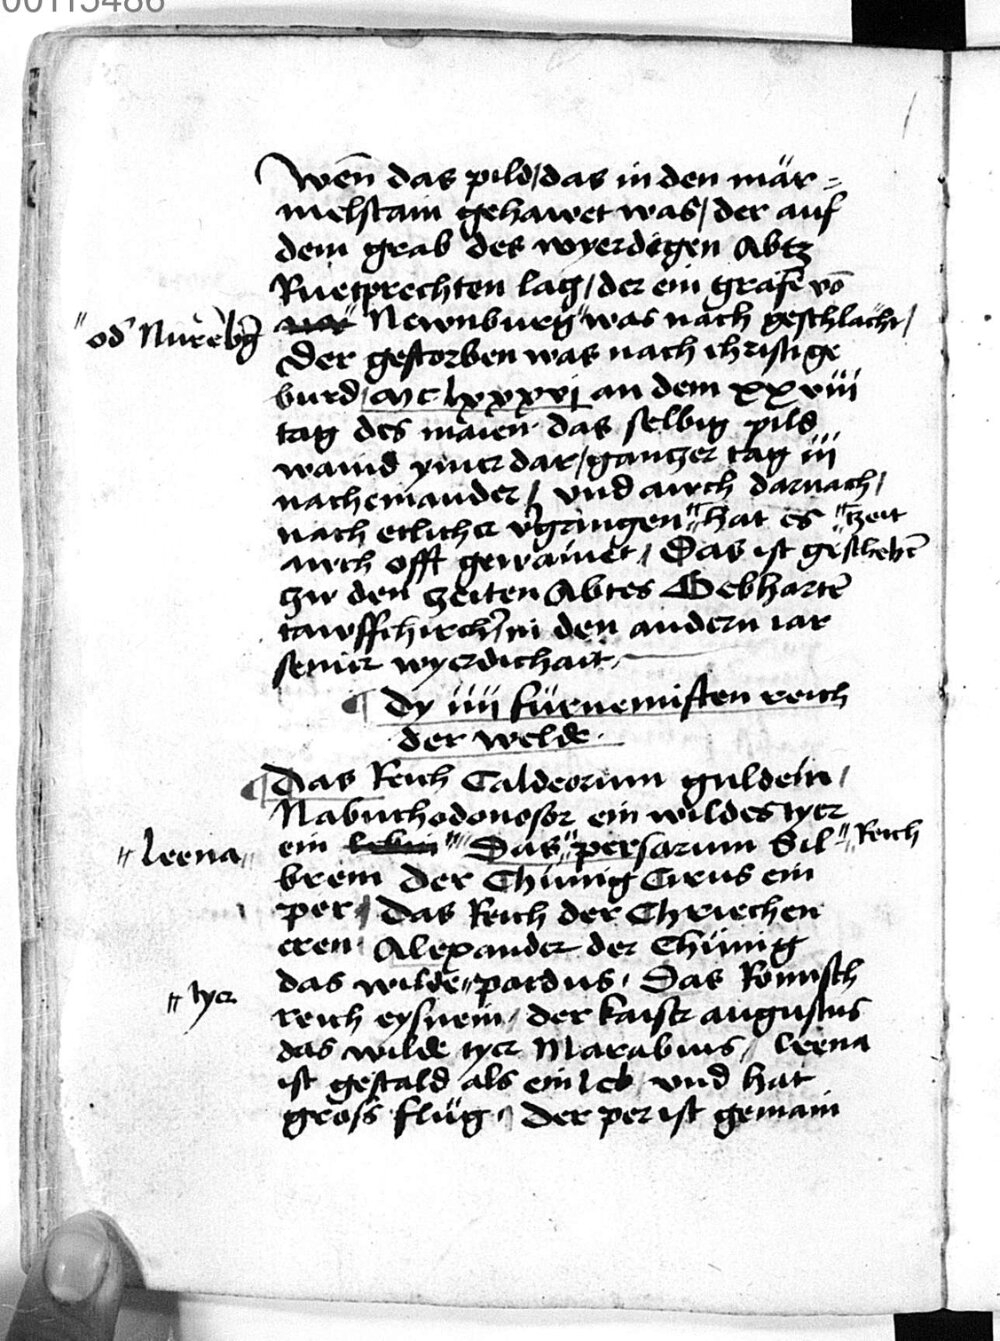 00115486
Wen̄ das pild / das in den mär=
melstain gehawet was / der auf
dem grab des wyerdigen Abtz
Ruetprechten lag / der ein grafe vō
"od' Nürēbḡ Newnburg" was nach geschlächt /
Der gestorben was nach christi ge
burd / MC lxxxxvj an dem xxviii
tag des maien das selbig pild
waind ymer dar / gantzer tag iii
nacheinander / vnd auch darnach /
nach etlicher v'gringen" hat es "zeit
auch offt gewainet / Das ist geschehē
zw den zeiten Abtes Gebharte
tawffchirch' in den andern iar
seiner wyerdichait
¶ Dy iiii fürnemisten reich
der welde
¶ Das Reich Caldeorum guldein /
Nabuchodonosor ein wildes tyer
"leena" ein "Das" persarum Sil "Reich
brein der Chünig Cirus ein
per / Das Reich der Chriechen
eren Alexander der Chünig
das wilde "pardus / Das Römisch
"tyer
reich eysnein / der kaiser augustus
das wilde tyer Marabius / leena
ist gestald als ein leb vnd hat
gross flüg / Der per ist gemain